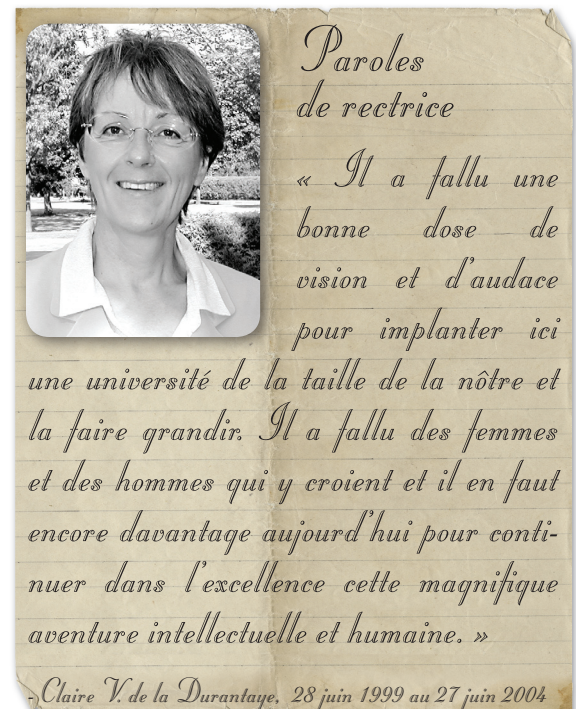 Paroles
de rectrice
« Il a fallu une
bonne dose de
vision et d'audace
pour implanter ici
une université de la taille de la nôtre et
la faire grandir. Il a fallu des femmes
et des hommes qui y croient et il en faut
encore davantage aujourd'hui pour conti-
nuer dans l'excellence cette magnifique
aventure intellectuelle et humaine. »
- Claire V. de la Durantaye, 28 juin 1999 au 27 juin 2004